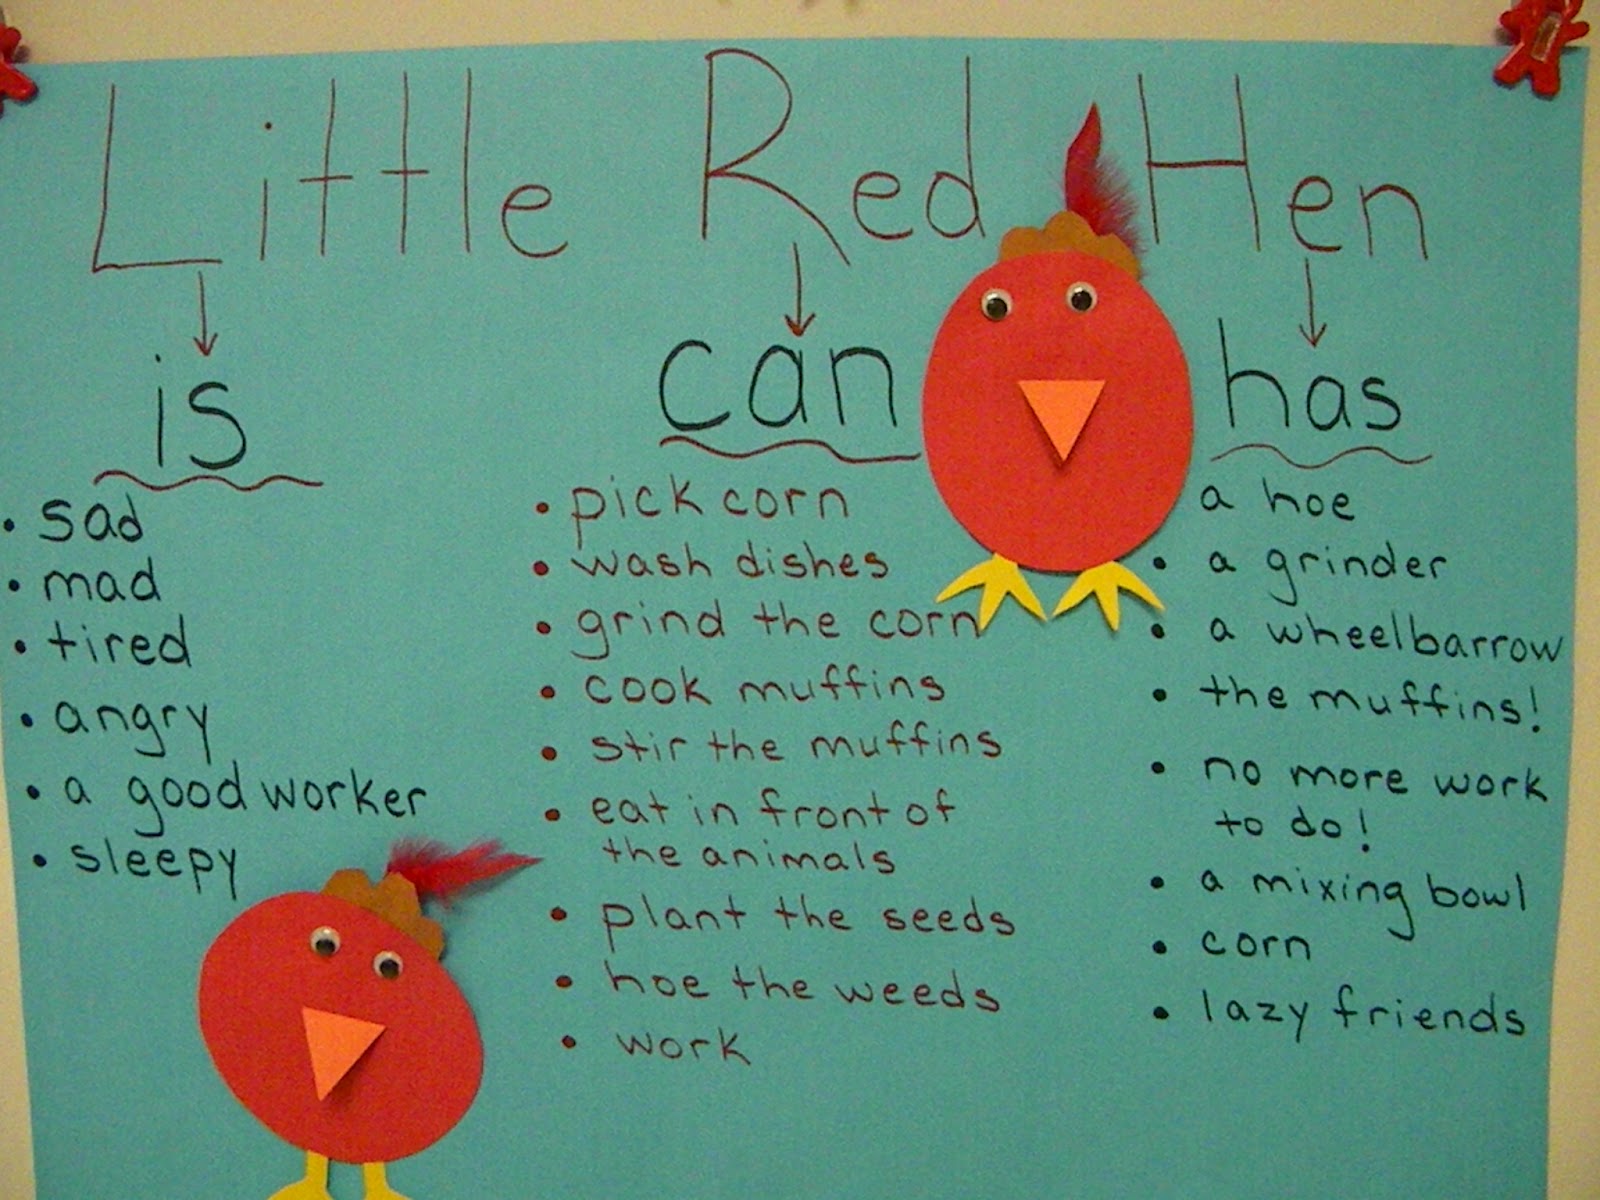 Little Red Hen
is
• sad
• mad
• tired
• angry
• a good worker
• sleepy
can
• pick corn
• wash dishes
• grind the corn
• cook muffins
• stir the muffins
• eat in front of
the animals
• plant the seeds
• hoe the weeds
• work
has
a hoe
• a grinder
• a wheelbarrow
• the muffins!
• no more work
to do!
• a mixing bowl
• corn
• lazy friends